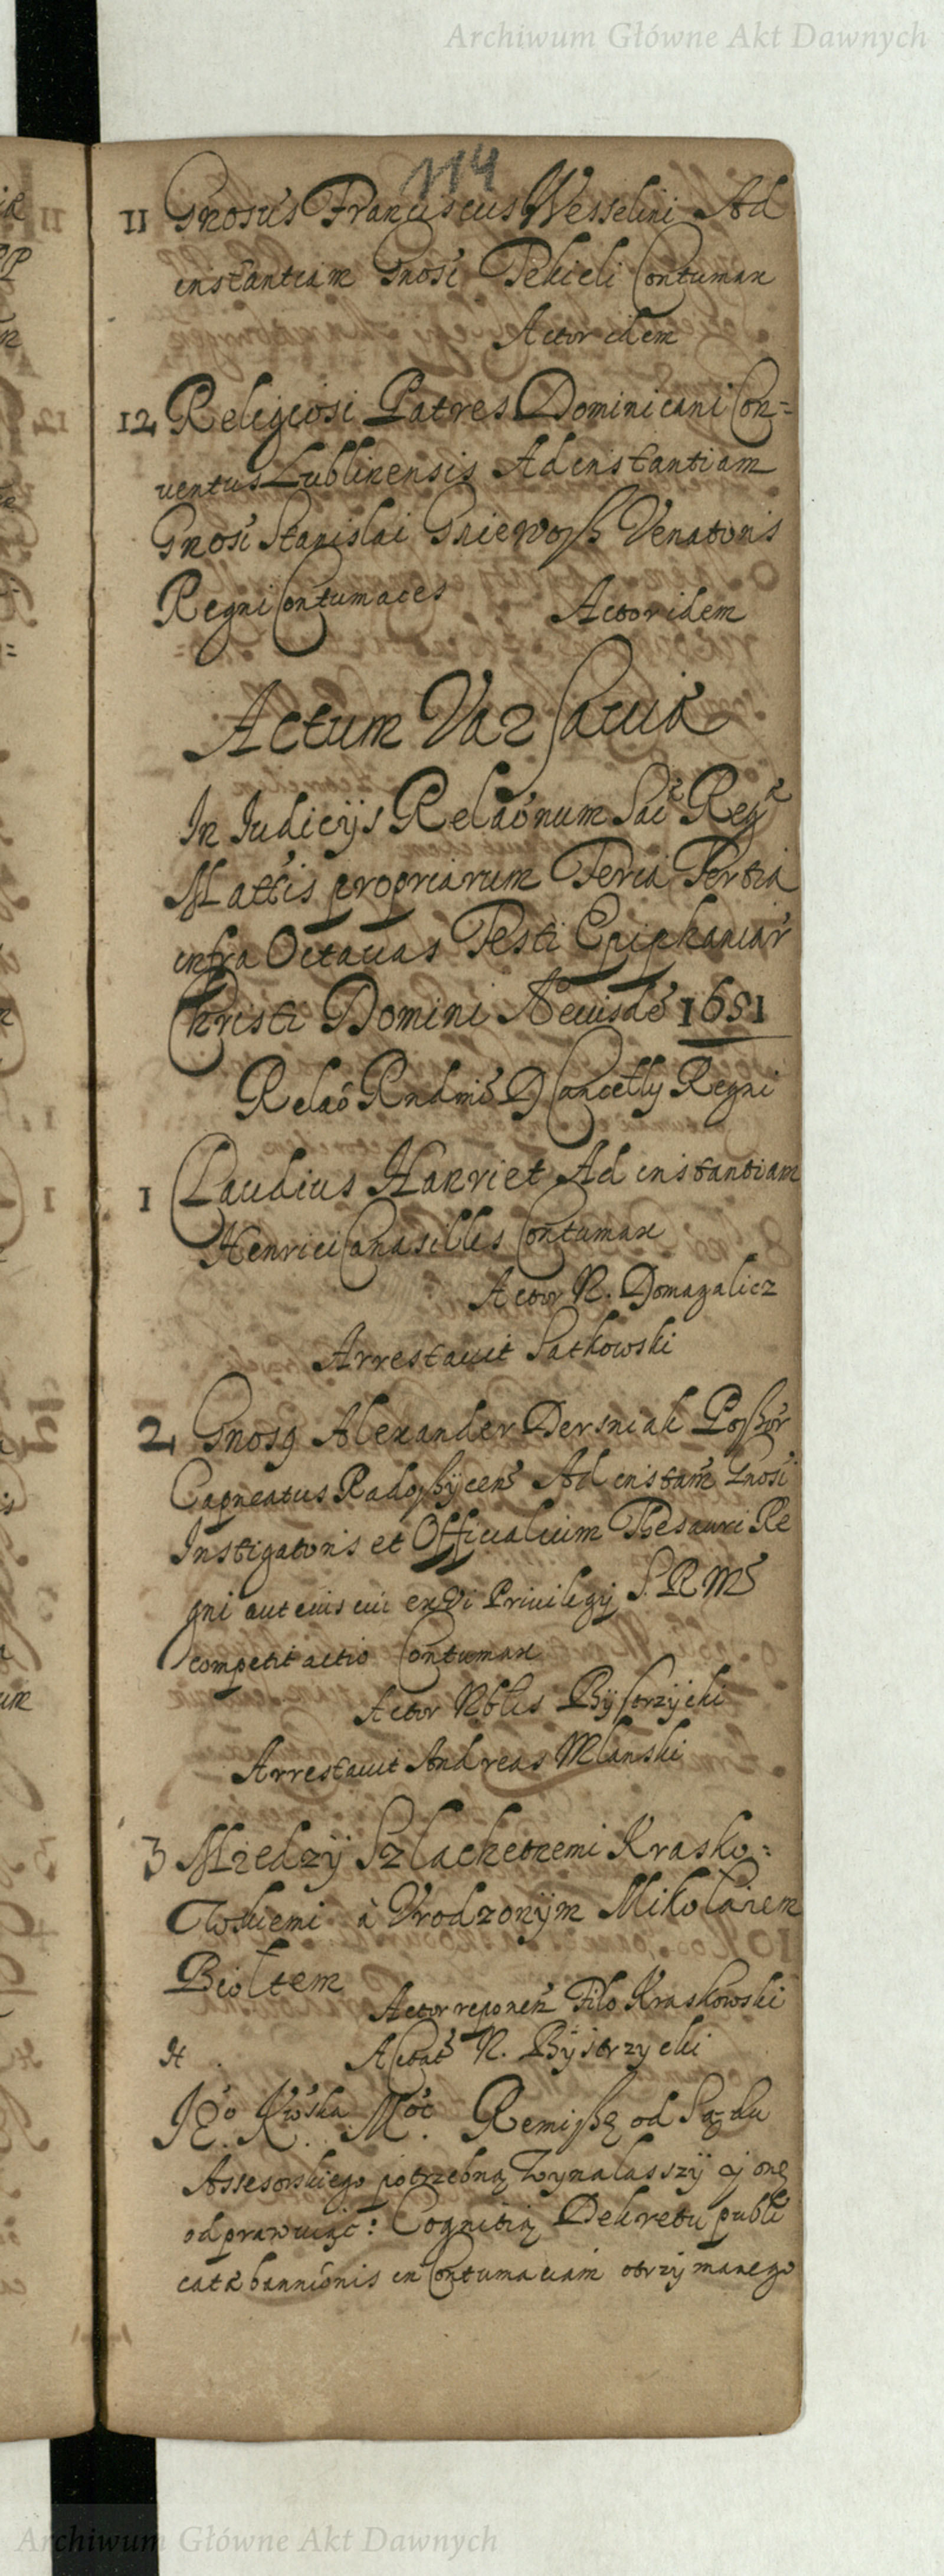 Archiwum Główne Akt Dawnych
114
11 Gnosus Franciscus Wesselini Ad
instantiam Gnosi Tekieli Contumax
Actor idem
12 Religiosi Patres Dominicani Con=
uentus Lublinensis Ad instantiam
Gnosi Stanislai Gniewoss Venatoris
Regni Contumaces Actor idem
Actum Varsauiæ
In Iudicijs Relaonum Sac Reg
Mattis propriarum Feria Tertia
infra Octauas Festi Epiphaniar
Christi Domini 1681
Relao Rndmi D Cancelly Regni
1 Claudius Hanriet Ad instantiam
Henrici Canasilles Contumax
Actor N. Domagalicz
Arrestauit Satkowski
2 Gnosg Alexander Dersniak Possor
Capneatus Radossÿcen Ad instam Gnosi
Instigatoris et Officialium Thesauri Re
gni aut cuis cui ex Vi Priuilegij S. R. Ms
competit actio Contumax
Actor Nblis Bÿstrzÿcki
Arrestauit Andreas Mlanski
3 Miedzÿ Szlachetnemi Krasko=
wskiemi à Vrodzonÿm Mikołaiem
Biołtem
Actor reponen Filo Kraskowski
Actor N. Bÿstrzycki
Jego Krolska Mośc Remissę od Sądu
Assesorskiego potrzebną wynalasszÿ ÿ onę
odprawuiąc: Cognitią Dekretu publi
catæ bannionis in Contumaciam otrzÿmanego
Archiwum Główne Akt Dawnych